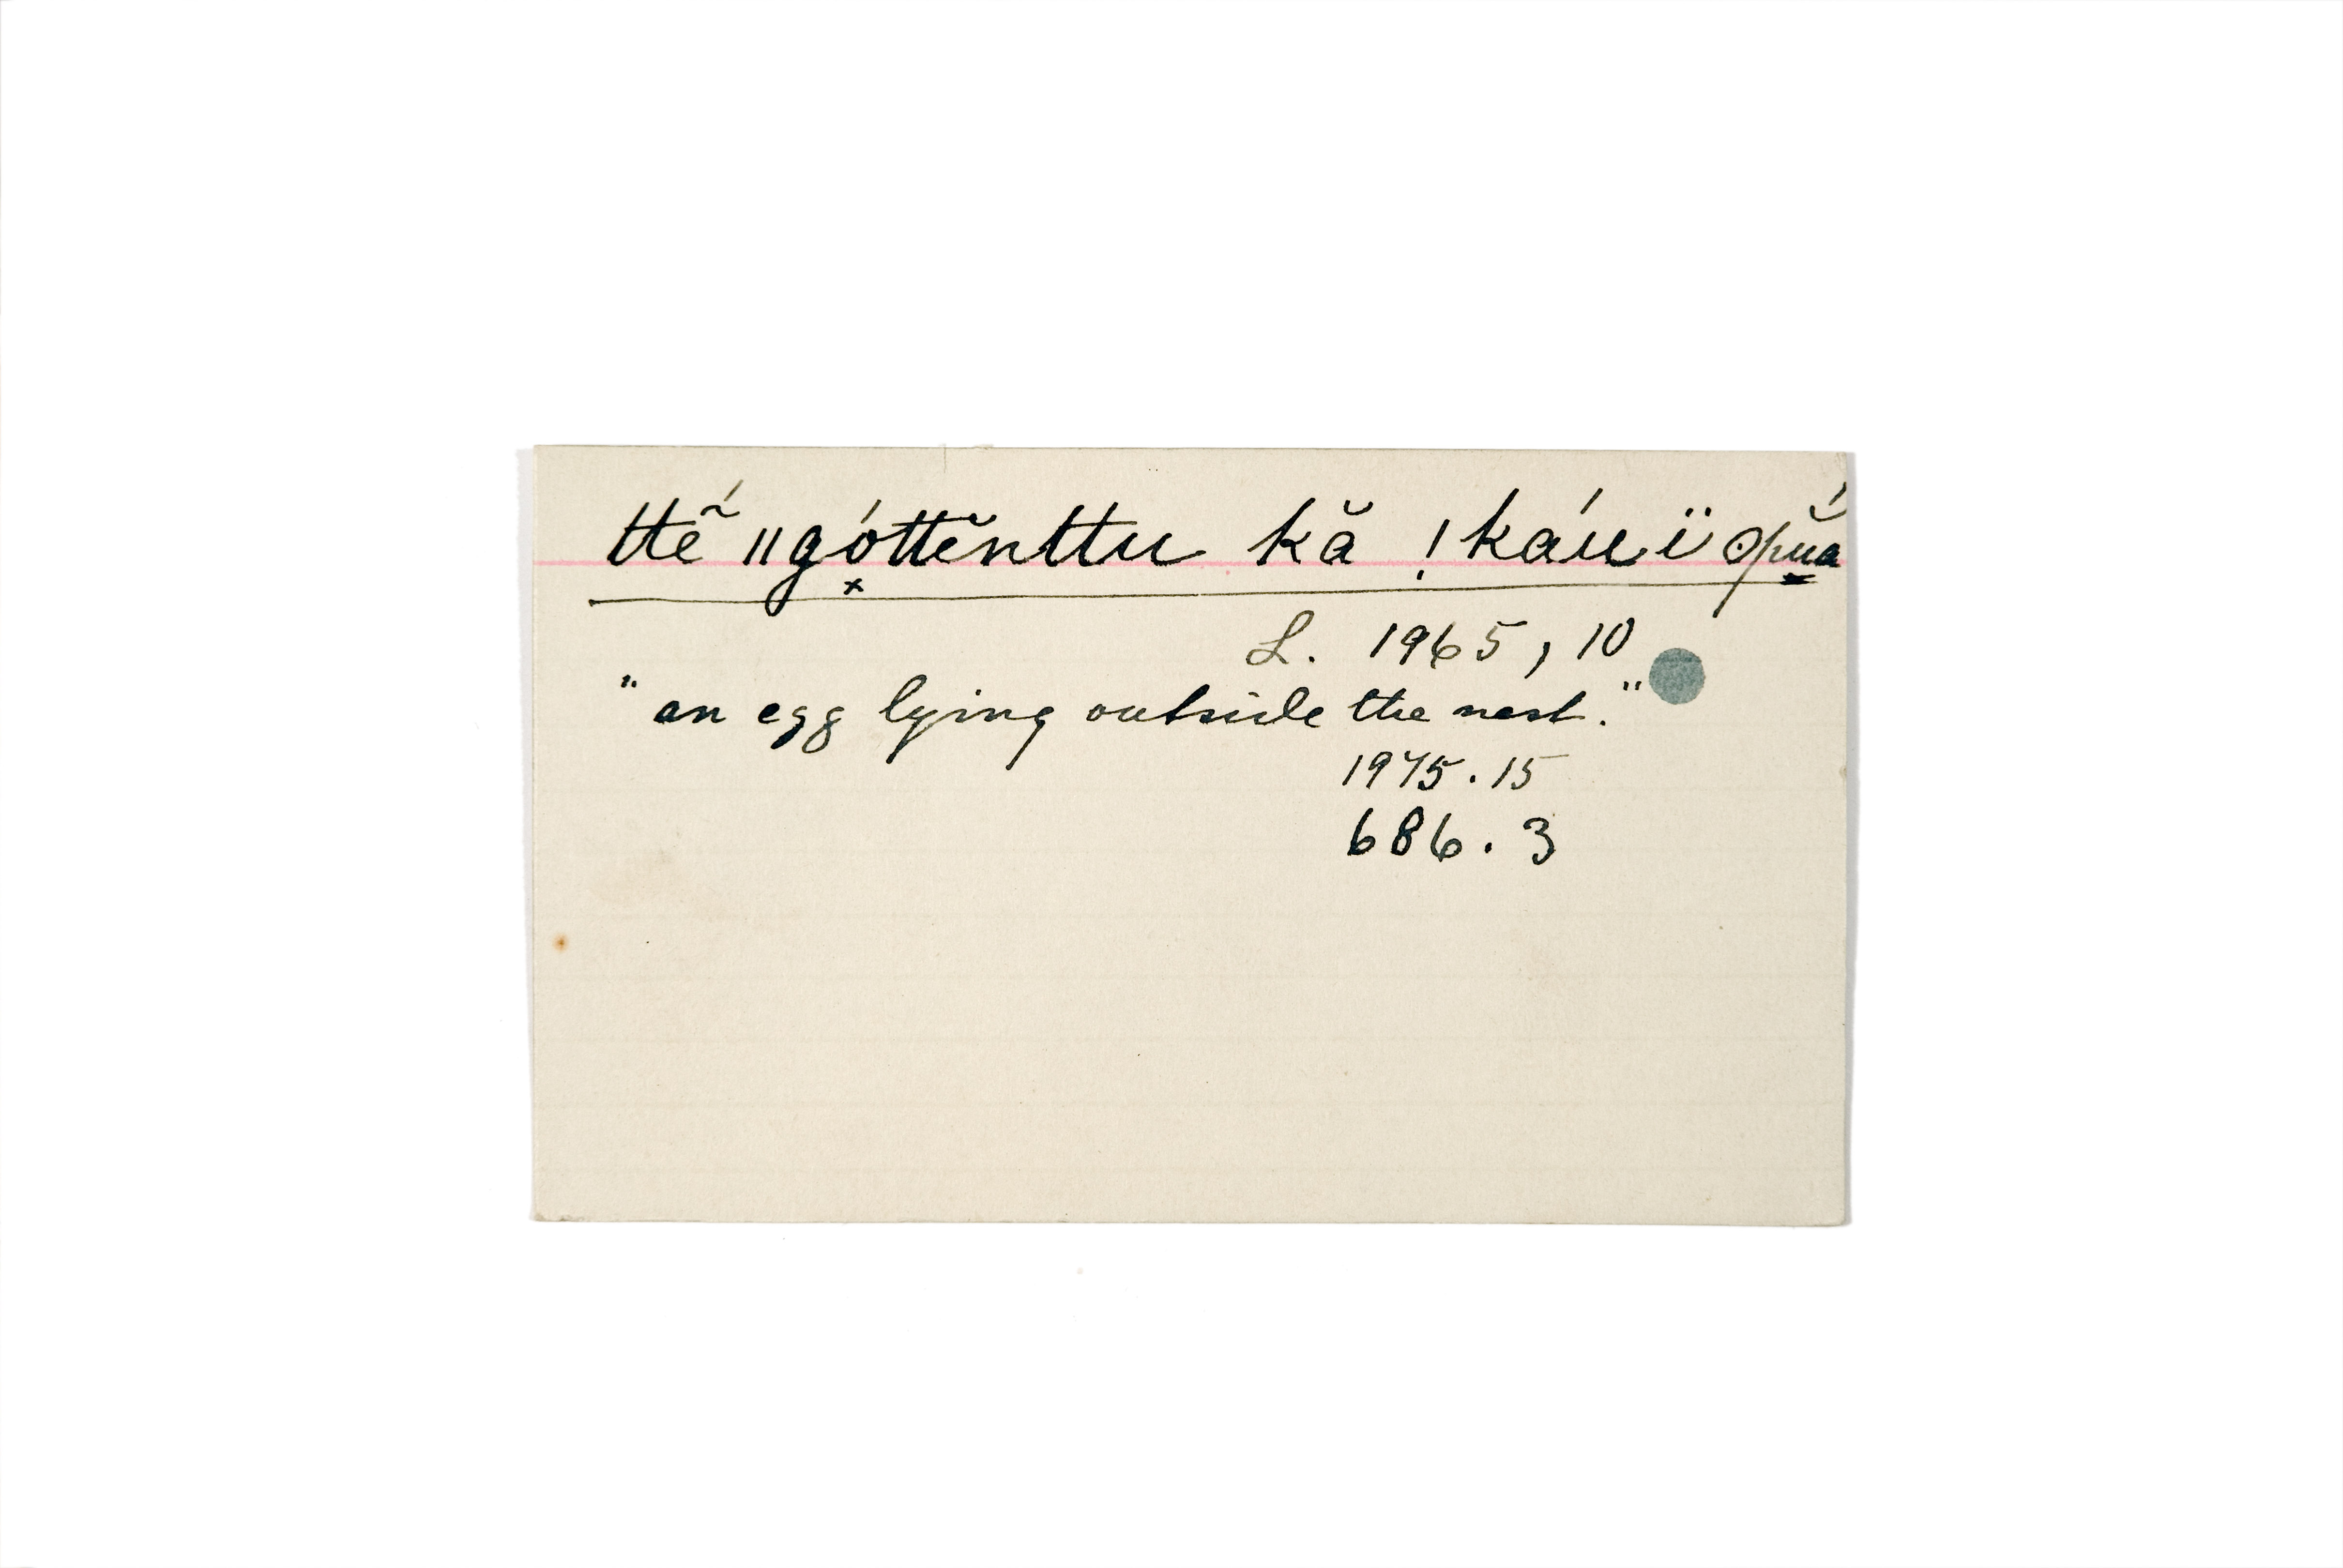 ttẽ́ ǁgó̽ttĕnttu kă !káuï ʘpŭ́a
L. 1965, 10
"an egg lying outside the nest."
1975.15
686.3